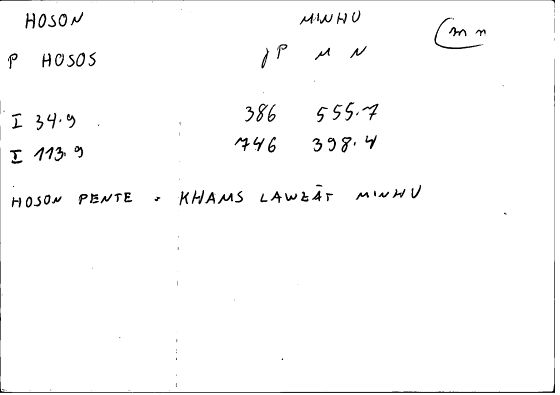 HOSON MINHU
(m n
P HOSOS P M N
I 34.9 386 555.7
I 113.9 746 398.4
HOSON PENTE = KHAMS LAWZĀT MINHU